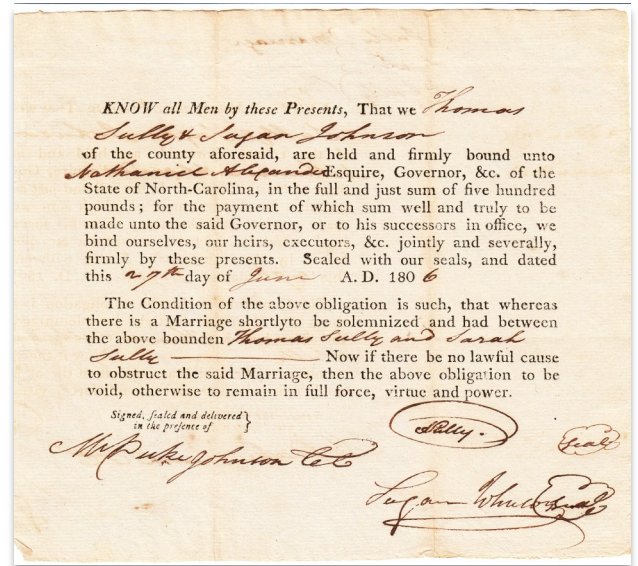 KNOW all Men by these Presents, That we Thomas
Sully & Sugan Johnson
of the county aforesaid, are held and firmly bound unto
Nathaniel Alexander Esquire, Governor, &c. of the
State of North-Carolina, in the full and just sum of five hundred
pounds; for the payment of which sum well and truly to be
made unto the said Governor, or to his successors in office, we
bind ourselves, our heirs, executors, &c. jointly and severally,
firmly by these presents. Sealed with our seals, and dated
this 27th day of June A. D. 1806
The Condition of the above obligation is such, that whereas
there is a Marriage shortlyto be solemnized and had between
the above bounden Thomas Sully and Sarah
Sully Now if there be no lawful cause
to obstruct the said Marriage, then the above obligation to be
void, otherwise to remain in full force, virtue and power.
Signed, sealed and delivered
in the presence of
Johnson
Seal
Sugan